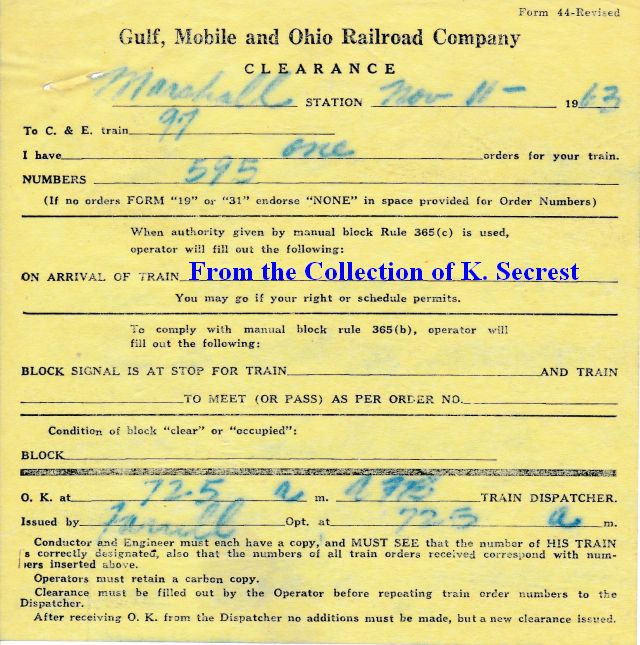 Form 44-Revised
Gulf, Mobile and Ohio Railroad Company
CLEARANCE
Marshall STATION Nov 11- 1963
To C. & E. train 97
I have one orders for your train.
NUMBERS 595
(If no orders FORM "19" or "31" endorse "NONE" in space provided for Order Numbers)
When authority given by manual block Rule 365(c) is used,
operator will fill out the following:
ON ARRIVAL OF TRAIN From the Collection of K. Secrest
You may go if your right or schedule permits.
To comply with manual block rule 365(b), operator will
fill out the following:
BLOCK SIGNAL IS AT STOP FOR TRAIN AND TRAIN
TO MEET (OR PASS) AS PER ORDER NO.
Condition of block "clear" or "occupied":
BLOCK
O. K. at 725 a m. TRAIN DISPATCHER.
Issued by Opt. at 725 a m.
Conductor and Engineer must each have a copy, and MUST SEE that the number of HIS TRAIN
is correctly designated, also that the numbers of all train orders received correspond with num-
bers inserted above.
Operators must retain a carbon copy.
Clearance must be filled out by the Operator before repeating train order numbers to the
Dispatcher.
After receiving O. K. from the Dispatcher no additions must be made, but a new clearance issued.